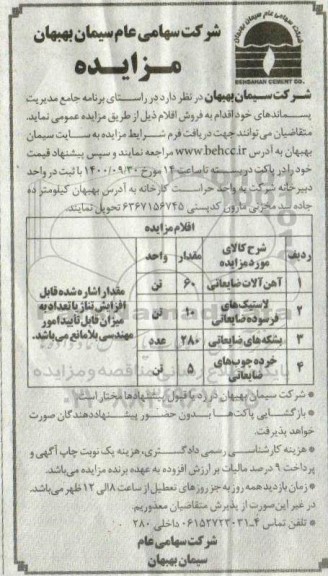 شرکت سهامی عام سیمان بهبهان
BEHBAHAN CEMENT CO.
شرکت سهامی عام سیمان بهبهان
مزایده
شرکت سیمان بهبهان در نظر دارد در راستای برنامه جامع مدیریت
پسماندهای خود اقدام به فروش اقلام ذیل از طریق مزایده عمومی نماید.
متقاضیان می توانند جهت دریافت فرم شرایط مزایده به سایت سیمان
بهبهان به آدرس www.behcc.ir مراجعه نمایند و سپس پیشنهاد قیمت
خود را در پاکت دربسته تا ساعت ۱۴ مورخ ۱۴۰۰/۰۹/۳۰ با ثبت در واحد
دبیرخانه شرکت به واحد حراست کارخانه به آدرس بهبهان کیلومتر ده
جاده سد مخزنی مارون کدپستی ۶۳۶۷۱۵۶۷۴۵ تحویل نمایند.
اقلام مزایده
ردیف شرح کالای مورد مزایده مقدار واحد
۱ آهن آلات ضایعاتی ۶۰ تن
۲ لاستیک های فرسوده ضایعاتی ۱۰ تن
۳ بشکه های ضایعاتی ۲۸۰ عدد
۴ خرده چوب های ضایعاتی ۵ تن
مقدار اشاره شده قابل
افزایش تناژ یا تعداد به
میزان قابل تأیید امور
مهندسی بلامانع می باشد.
* شرکت سیمان بهبهان در رد یا قبول پیشنهادها مختار است.
* بازگشایی پاکت ها بدون حضور پیشنهاددهندگان صورت
خواهد پذیرفت.
* هزینه کارشناسی رسمی دادگستری، هزینه یک نوبت چاپ آگهی و
پرداخت ۹ درصد مالیات بر ارزش افزوده به عهده برنده مزایده می باشد.
* زمان بازدید همه روز به جز روزهای تعطیل از ساعت ۸ الی ۱۲ ظهر می باشد.
در غیر این صورت از پذیرش متقاضیان معذوریم.
* تلفن تماس ۴_۰۶۱۵۲۷۲۳۰۳۱ داخلی ۲۸۰
شرکت سهامی عام
سیمان بهبهان